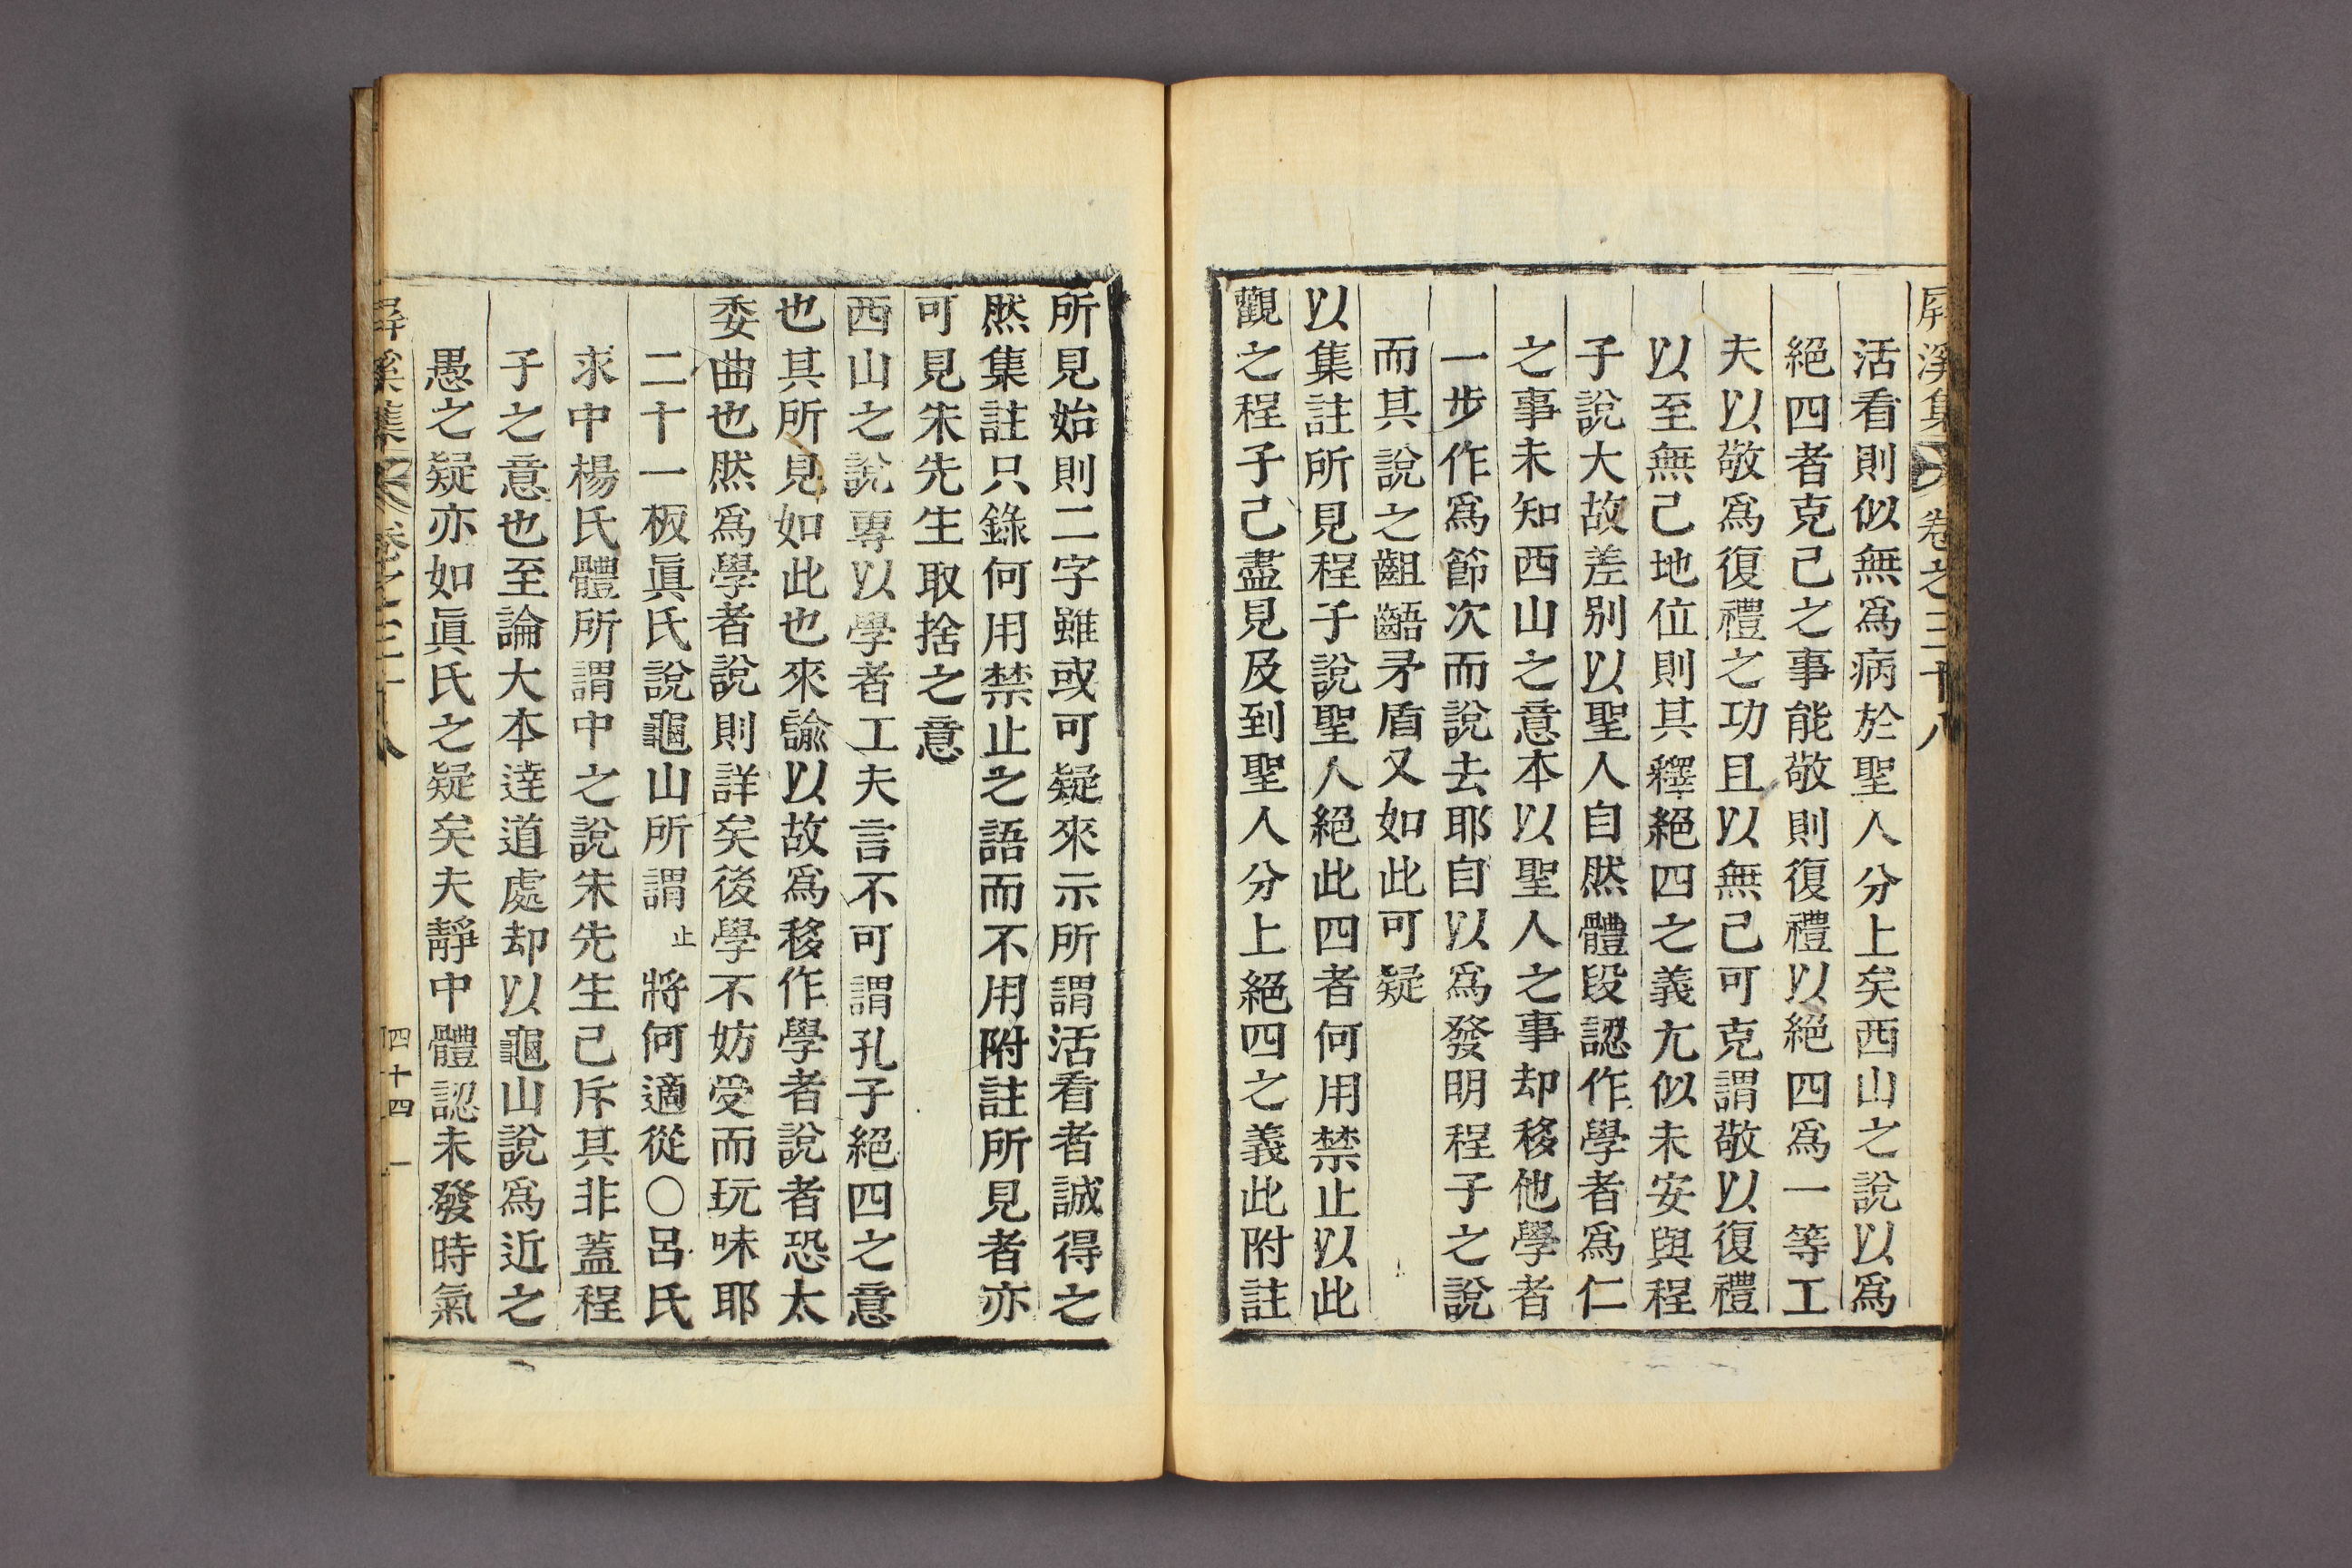 屛溪集 卷之三十八
活看則似無爲病於聖人分上矣西山之說以爲
絕四者克己之事能敬則復禮以絕四爲一等工
夫以敬爲復禮之功且以無己可克謂敬以復禮
以至無己地位則其釋絕四之義尤似未安與程
子說大故差别以聖人自然體段認作學者爲仁
之事未知西山之意本以聖人之事却移他學者
一步作爲節次而說去耶自以爲發明程子之說
而其說之齟齬矛盾又如此可疑
以集註所見程子說聖人絕此四者何用禁止以此
觀之程子己盡見及到聖人分上絕四之義此附註
所見始則二字雖或可疑來示所謂活看者誠得之
然集註只錄何用禁止之語而不用附註所見者亦
可見朱先生取捨之意
西山之說專以學者工夫言不可謂孔子絕四之意
也其所見如此也來諭以故爲移作學者說者恐太
委曲也然爲學者說則詳矣後學不妨受而玩味耶
二十一板眞氏說龜山所謂止將何適從○呂氏
求中楊氏體所謂中之說朱先生己斥其非蓋程
子之意也至論大本達道處却以龜山說爲近之
愚之疑亦如眞氏之疑矣夫靜中體認未發時氣
屛溪集 卷之三十八 四十四